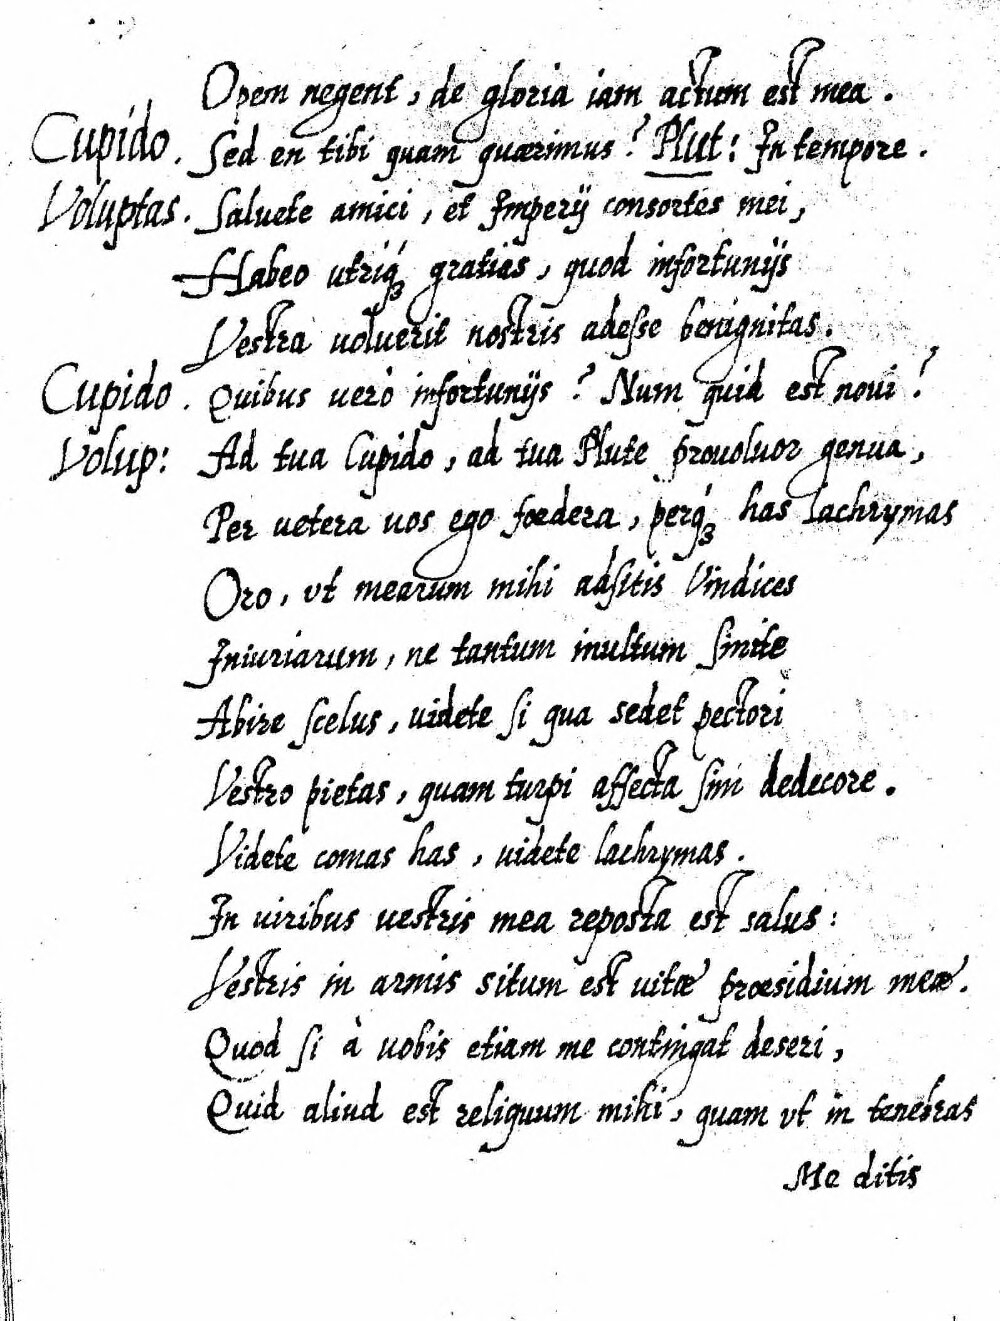 Opem negent, de gloria iam actum est mea.
Cupido. Sed en tibi quam quærimus? Plut: In tempore.
Voluptas. Saluete amici, et Imperij consortes mei,
Habeo utriq́ꝫ gratias, quod infortunijs
Vestra uoluerit nostris adesse benignitas.
Cupido. Quibus uerò infortunijs? Num quid est noui?
Volup: Ad tua Cupido, ad tua Plute prouoluor genua,
Per uetera uos ego fœdera, perq́ꝫ has lachrymas
Oro, vt mearum mihi adsitis Vindices
Iniuriarum, ne tantum inultum sinite
Abire scelus, uidete si qua sedet pectori
Vestro pietas, quam turpi affecta sim dedecore.
Videte comas has, uidete lachrymas.
In uiribus uestris mea reposta est salus:
Vestris in armis situm est uitæ præsidium meæ.
Quod si à uobis etiam me contingat deseri,
Quid aliud est reliquum mihi, quam vt in tenebras
Me ditis